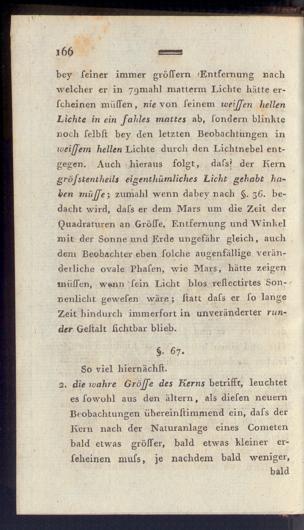 166
bey ſeiner immer gröſſern Entfernung nach
welcher er in 79mahl matterm Lichte hätte er-
ſcheinen müſſen, nie von ſeinem weiſſen hellen
Lichte in ein fahles mattes ab, ſondern blinkte
noch ſelbſt bey den letzten Beobachtungen in
weiſſem hellen Lichte durch den Lichtnebel ent-
gegen. Auch hieraus folgt, daſs der Kern
gröſstentheils eigenthümliches Licht gehabt ha-
ben müſſe; zumahl wenn dabey nach §. 36. be-
dacht wird, daſs er dem Mars um die Zeit der
Quadraturen an Gröſſe, Entfernung und Winkel
mit der Sonne und Erde ungefähr gleich, auch
dem Beobachter eben ſolche augenfällige verän-
derliche ovale Phaſen, wie Mars, hätte zeigen
müſſen, wenn ſein Licht blos reflectirtes Son-
nenlicht geweſen wäre; ſtatt daſs er ſo lange
Zeit hindurch immerfort in unveränderter run-
der Geſtalt ſichtbar blieb.
§. 67.
So viel hiernächſt.
2. die wahre Gröſſe des Kerns betrifft, leuchtet
es ſowohl aus den ältern, als dieſen neuern
Beobachtungen übereinſtimmend ein, daſs der
Kern nach der Naturanlage eines Cometen
bald etwas gröſſer, bald etwas kleiner er-
ſcheinen muſs, je nachdem bald weniger,
bald